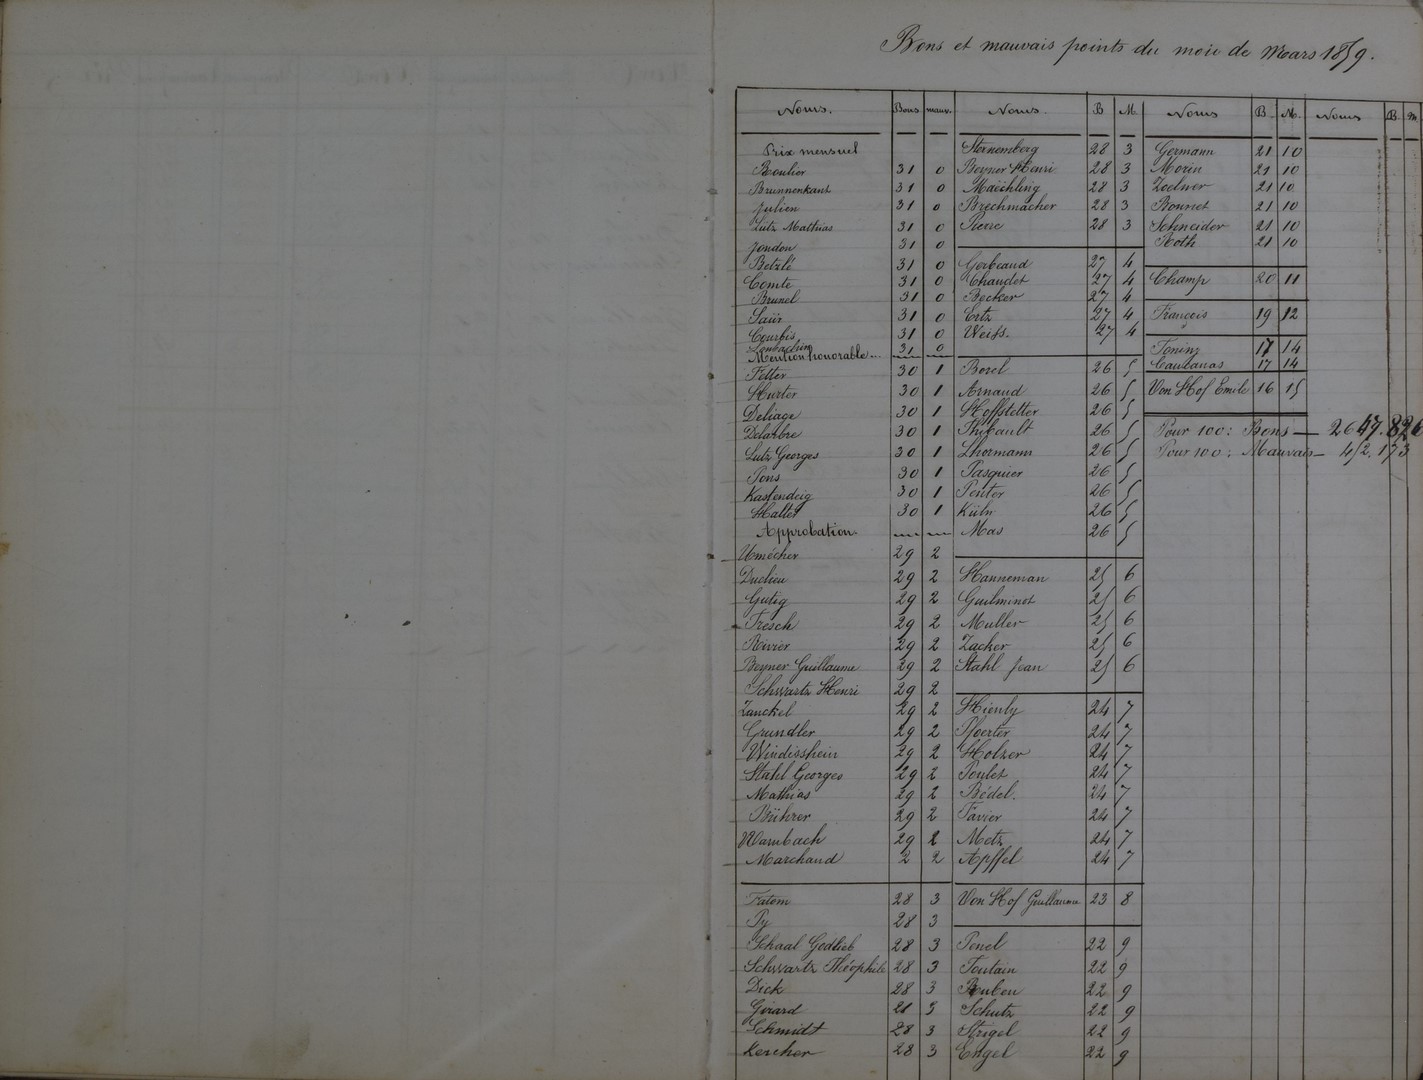 Bons et mauvais points du mois de Mars 1859.
Noms. Bons mauv.
Prix mensuel
Boulier 31 0
Brunnenkant 31 0
Julien 31 0
Lutz Mathias 31 0
Jondon 31 0
Betzlé 31 0
Comte 31 0
Brunel 31 0
Saür 31 0
Courbis 31 0
31 0
Mention honorable
Fetter 30 1
Hurter 30 1
Deliage 30 1
Delarbre 30 1
Lutz Georges 30 1
Pons 30 1
Kastendeig 30 1
Halter 30 1
Approbation.
Umécher 29 2
Duclieu 29 2
Gutig 29 2
Fresch 29 2
Rivier 29 2
Beyner Guillaume 29 2
Schwartz Henri 29 2
Zanckel 29 2
Grundler 29 2
Windisshein 29 2
Stahl Georges 29 2
Mathias 29 2
Bührer 29 2
Wambach 29 2
Marchand 2 2
Fatom 28 3
Py 28 3
Schaal Godlieb 28 3
Schwartz Théophile 28 3
Dick 28 3
Girard 28 3
Schmidt 28 3
Kercher 28 3
Noms. B M.
Sternemberg 28 3
Beyner Henri 28 3
Maëchling 28 3
Brechmacher 28 3
Pierre 28 3
Gerbeaud 27 4
Chaudet 27 4
Becker 27 4
Ertz 27 4
Weiss. 27 4
Borel 26 5
Arnaud 26 5
Hoffstetter 26 5
Thibault 26 5
Lhormann 26 5
Pasquier 26 5
Pentor 26 5
Kühn 26 5
Mas 26 5
Hanneman 25 6
Guilminot 25 6
Muller 25 6
Zacker 25 6
Stahl Jean 25 6
Hienly 24 7
Pfoerter 24 7
Holzer 24 7
Poulet 24 7
Bédel. 24 7
Favier 24 7
Metz 24 7
Apffel 24 7
Von Hof Guillaume 23 8
Penel 22 9
Foutain 22 9
Ruben 22 9
Schutz 22 9
Strigel 22 9
Engel 22 9
Noms B. M.
Germann 21 10
Morin 21 10
Zoelner 21 10
Bonnet 21 10
Schneider 21 10
Roth 21 10
Champ 20 11
François 19 12
Toninz 17 14
Caulanas 17 14
Von Hof Emile 16 15
Pour 100: Bons — 2647.826
Pour 100: Mauvais — 452.173
Noms B. M.